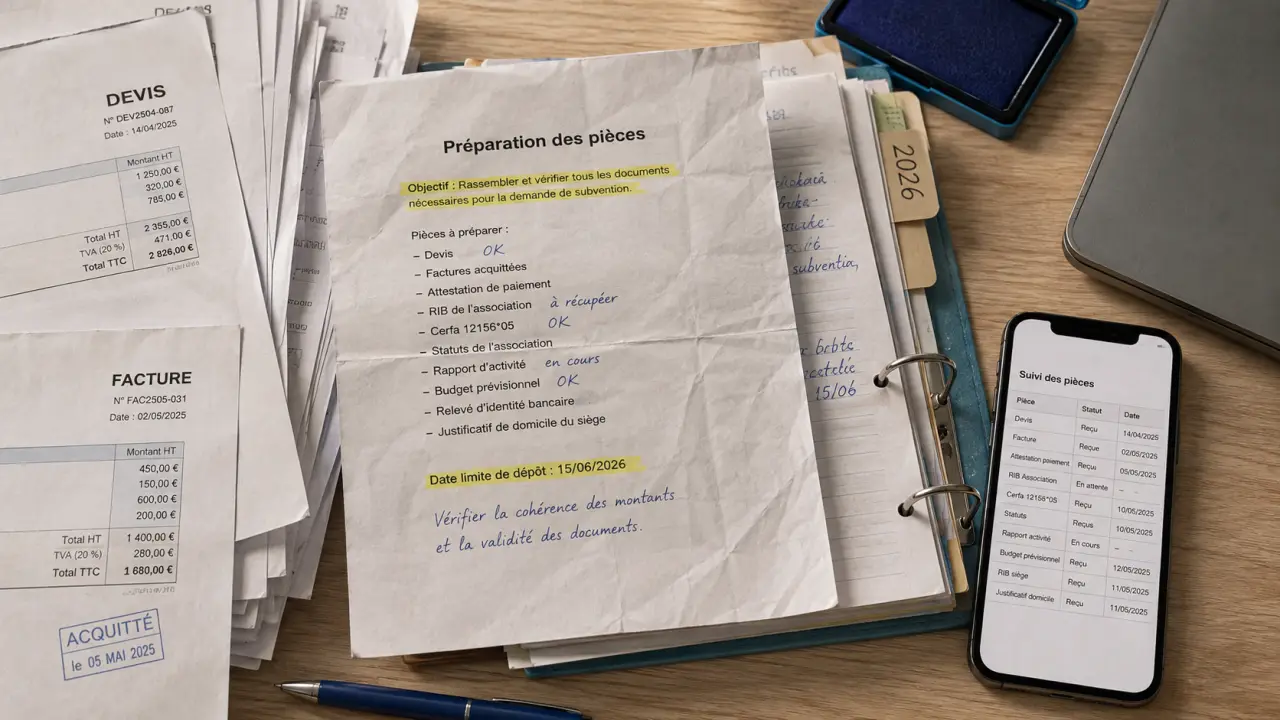 DEVIS
N° DEV2504-087
Date : 14/04/2025
Montant HT
1 250,00 €
320,00 €
785,00 €
Total HT 2 355,00 €
TVA (20 %) 471,00 €
Total TTC 2 826,00 €
FACTURE
N° FAC2505-031
Date : 02/05/2025
Montant HT
450,00 €
150,00 €
600,00 €
200,00 €
Total HT 1 400,00 €
TVA (20 %) 280,00 €
Total TTC 1 680,00 €
ACQUITTÉ
le 05 MAI 2025
Préparation des pièces
Objectif : Rassembler et vérifier tous les documents
nécessaires pour la demande de subvention.
Pièces à préparer :
– Devis OK
– Factures acquittées
– Attestation de paiement
– RIB de l'association à récupéer
– Cerfa 12156*05 OK
– Statuts de l'association
– Rapport d'activité en cours
– Budget prévisionnel OK
– Relevé d'identité bancaire
– Justificatif de domicile du siège
Date limite de dépôt : 15/06/2026
Vérifier la cohérence des montants
et la validité des documents.
subventia,
15/06
2026
Suivi des pièces
Pièce Statut Date
Devis Reçu 14/04/2025
Facture Reçue 02/05/2025
Attestation paiement Reçu 05/05/2025
RIB Association En attente – –
Cerfa 12156*05 Reçu 10/05/2025
Statuts Reçus 10/05/2025
Rapport activité En cours – –
Budget prévisionnel Reçu 12/05/2025
RIB siège Reçu 11/05/2025
Justificatif domicile Reçu 11/05/2025